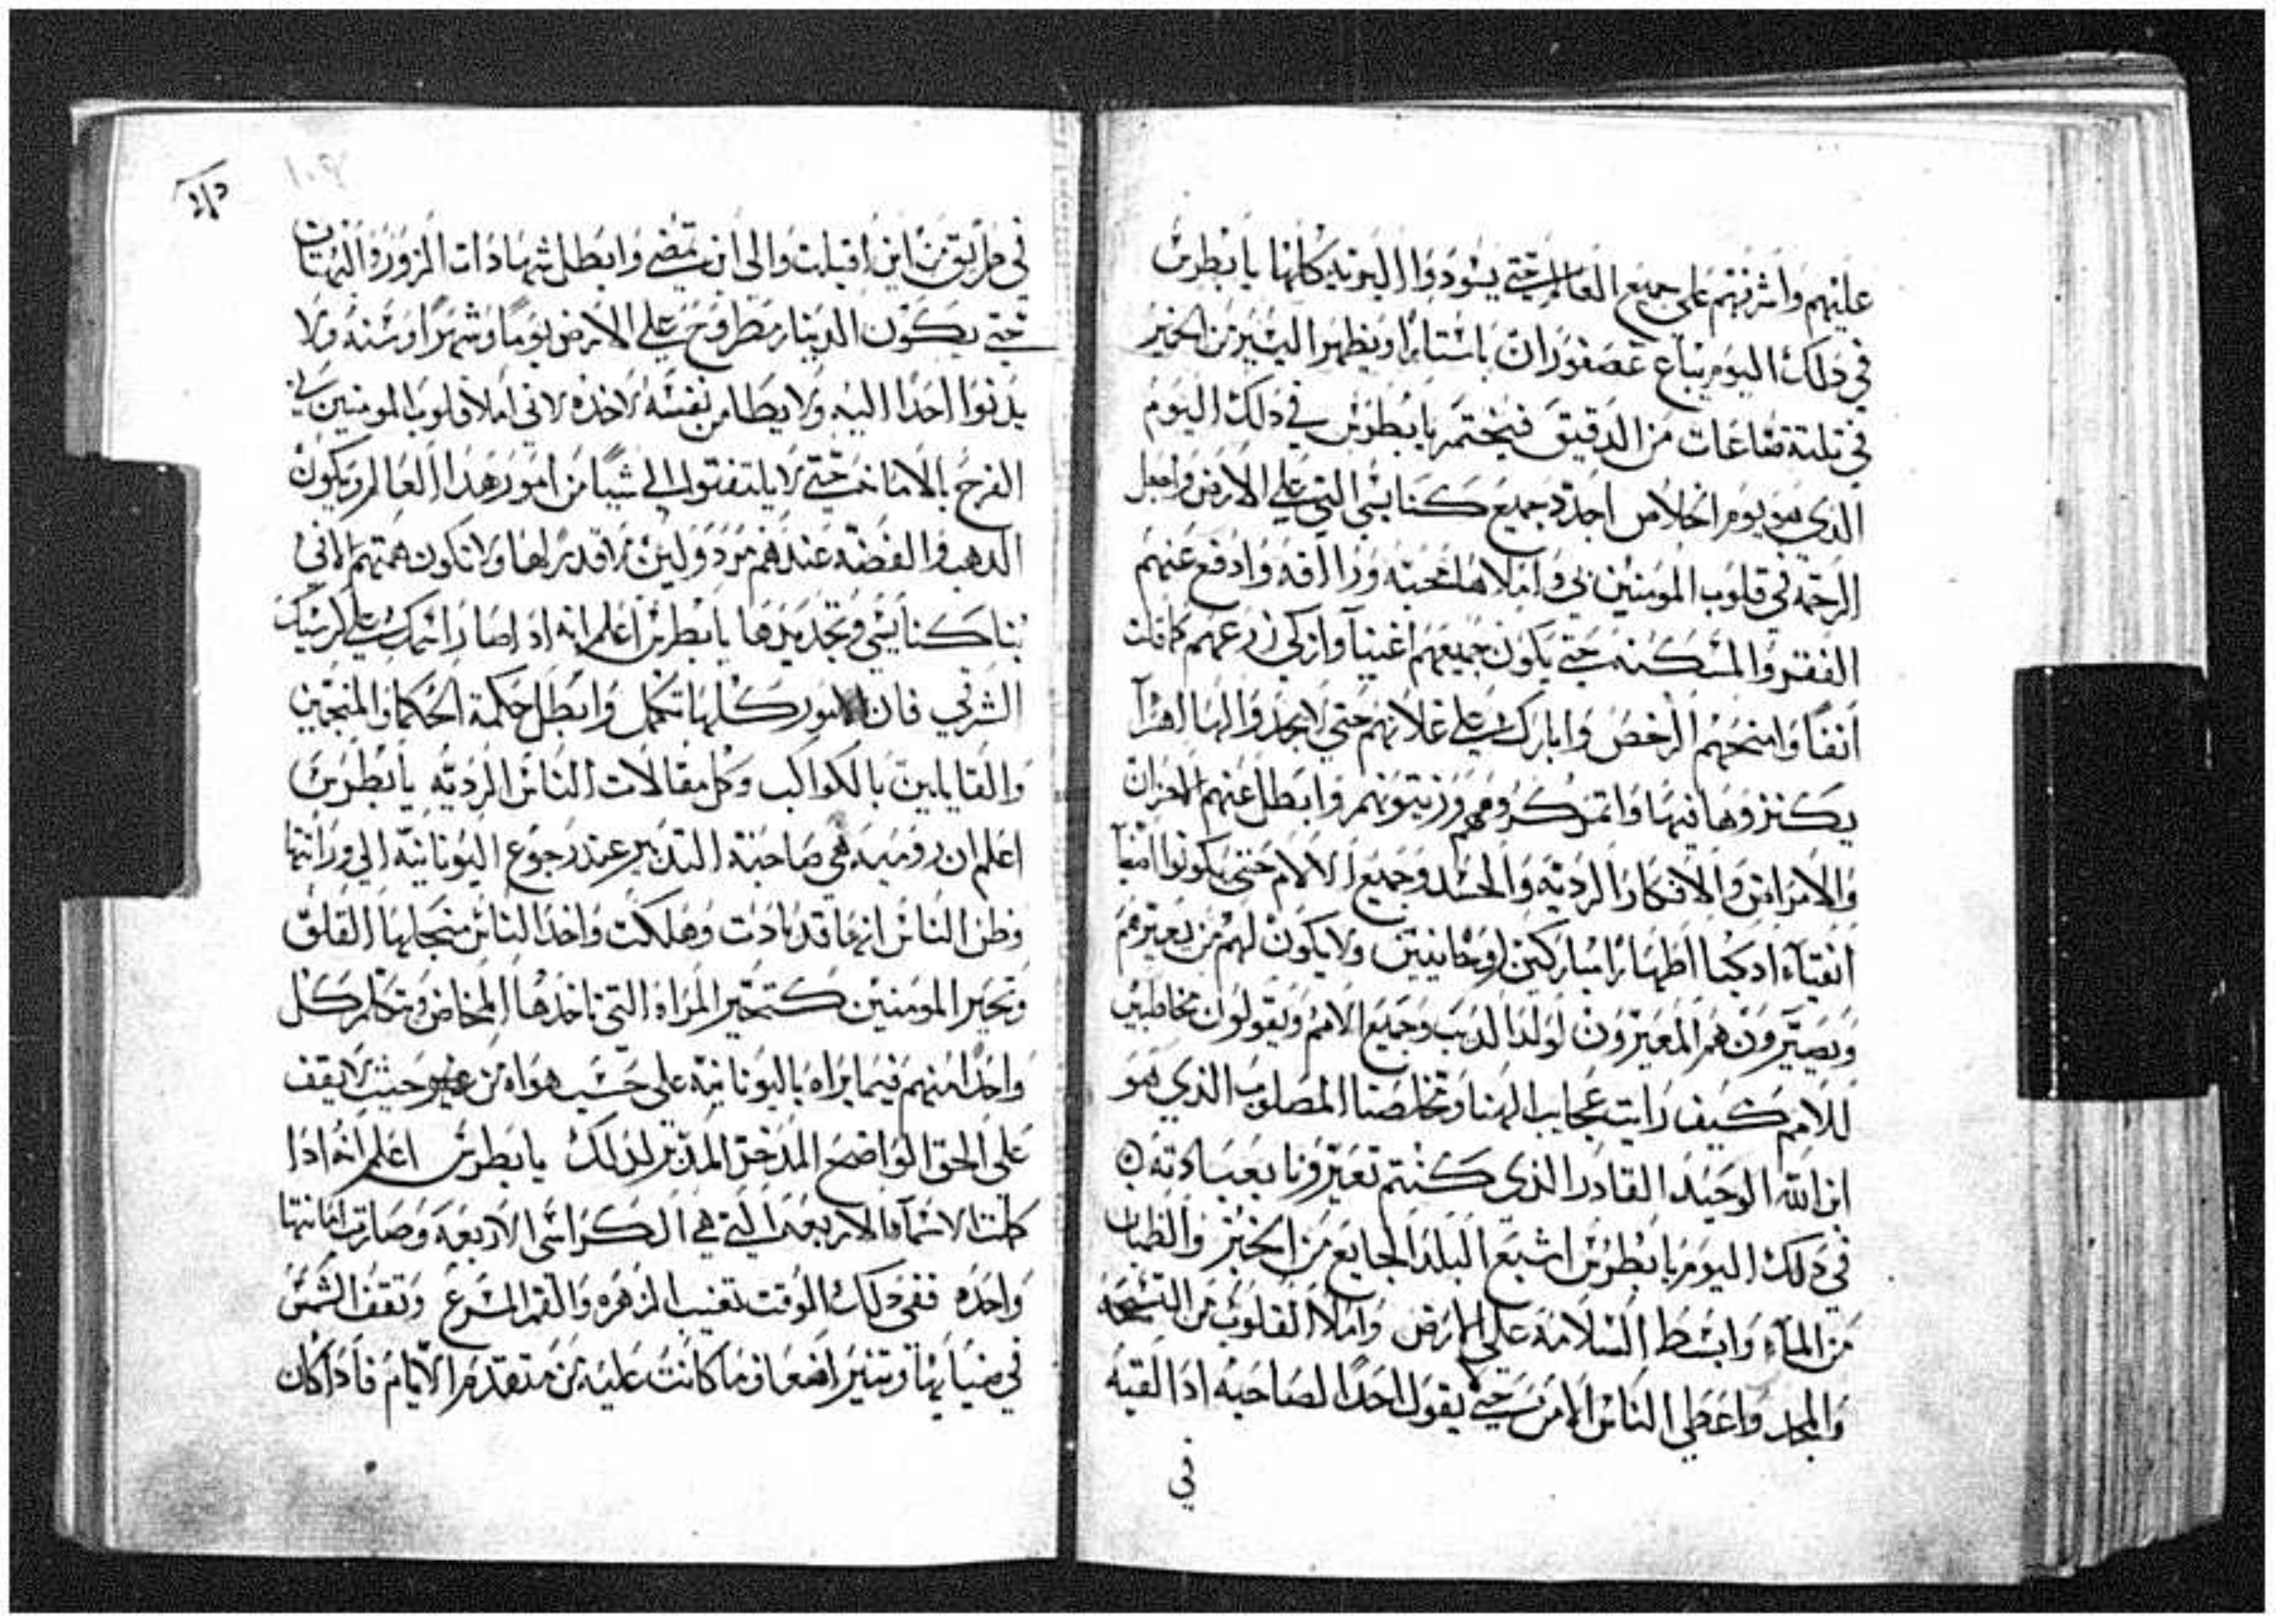 عليهم واشرفهم على جميع العالم حتى يسودوا البريه كلها يا بطرس
في دلك اليوم يباع عصفوران باستارا ويظهر اليسير من الخمير
في تلتة من الدقيق فيختمر يا بطرس في دلك اليوم
الذي هو يوم الخلاص اجدد جميع كنايسي التي على الارض واجعل
الرحمه في قلوب المومنين بي واملاها محبه وراافه وادفع عنهم
الفقر والمسكنه حتى يكون جميعهم اغنيآ وازكي زرعهم كما قلت
انفا وامنحهم الرخص وابارك على غلاتهم حتى لا يجدوا لها اهرآ
يكنزوها فيها واتمر كرومهم وزيتونهم وابطل عنهم الاحزان
والامراض والافكار الرديه والحسد وجميع الالام حتى يكونوا
انقيآء ادكيا اطهارا مباركين روحانيين ولا يكون لهم من يعيرهم
ويصيرون هم المعيرون لولد الديب وجميع الامم ويقولون مخاطبين
للامم كيف رايت عجايب الهنا ومخلصنا المصلوب الذي هو
ابن الله الوحيد القادر الذي كنتم تعيرونا بعبادته
في دلك اليوم يا بطرس اشبع البلد الجايع من الخبز والظمان
من المآء وابسط السلامه على الارض واملا القلوب من التسبحه
والمجد واعطي الناس الامن حتى يقول احدا لصاحبه ادا لقيه
في
في طريق من اين اقبلت والى اين تمضي وابطل شهادات الزور والبهتان
حتى يكون الدينار مطروح على الارض يوما وشهرا وسنه ولا
يدنوا احدا اليه ولا يطامن نفسه لاخده لاني املا قلوب المومنين بي
الفرح بالامانه حتى لا يلتفتوا الى شيا من امور هدا العالم ويكون
الدهب والفضه عندهم مردولين لا قدر لها ولا تكون همتهم الا في
بنا كنايسي وتجديدها يا بطرس اعلم انه ادا صار اسمك على كرسيك
الشرقي فان الامور كلها تكمل وابطل حكمة الحكما والمنجمين
والقايلين بالكواكب وكل مقالات الناس الرديه يا بطرس
اعلم ان روميه هي صاحبة التدبير عند رجوع اليونانيه الى وراتتها
وظن الناس انها قد بادت وهلكت واخد الناس من القلق
وتحير المومنين كتحير المراه التي ياخدها المخاض وتكلم كل
واحدا منهم فيما يراه باليونانية على حسب هواه من حيث لا يقف
على الحق الواضح المدخر المدبر لدلك يا بطرس اعلم انه ادا
كملت الاسمآ الاربعه التي هي الكراسي الاربعه وصارت امانتها
واحده ففي دلك الوقت تغيب الزهره والقمر المسرع وتقف الشمس
في ضيايها وتنير اضعاف ما كانت عليه من متقدم الايام فادا كان